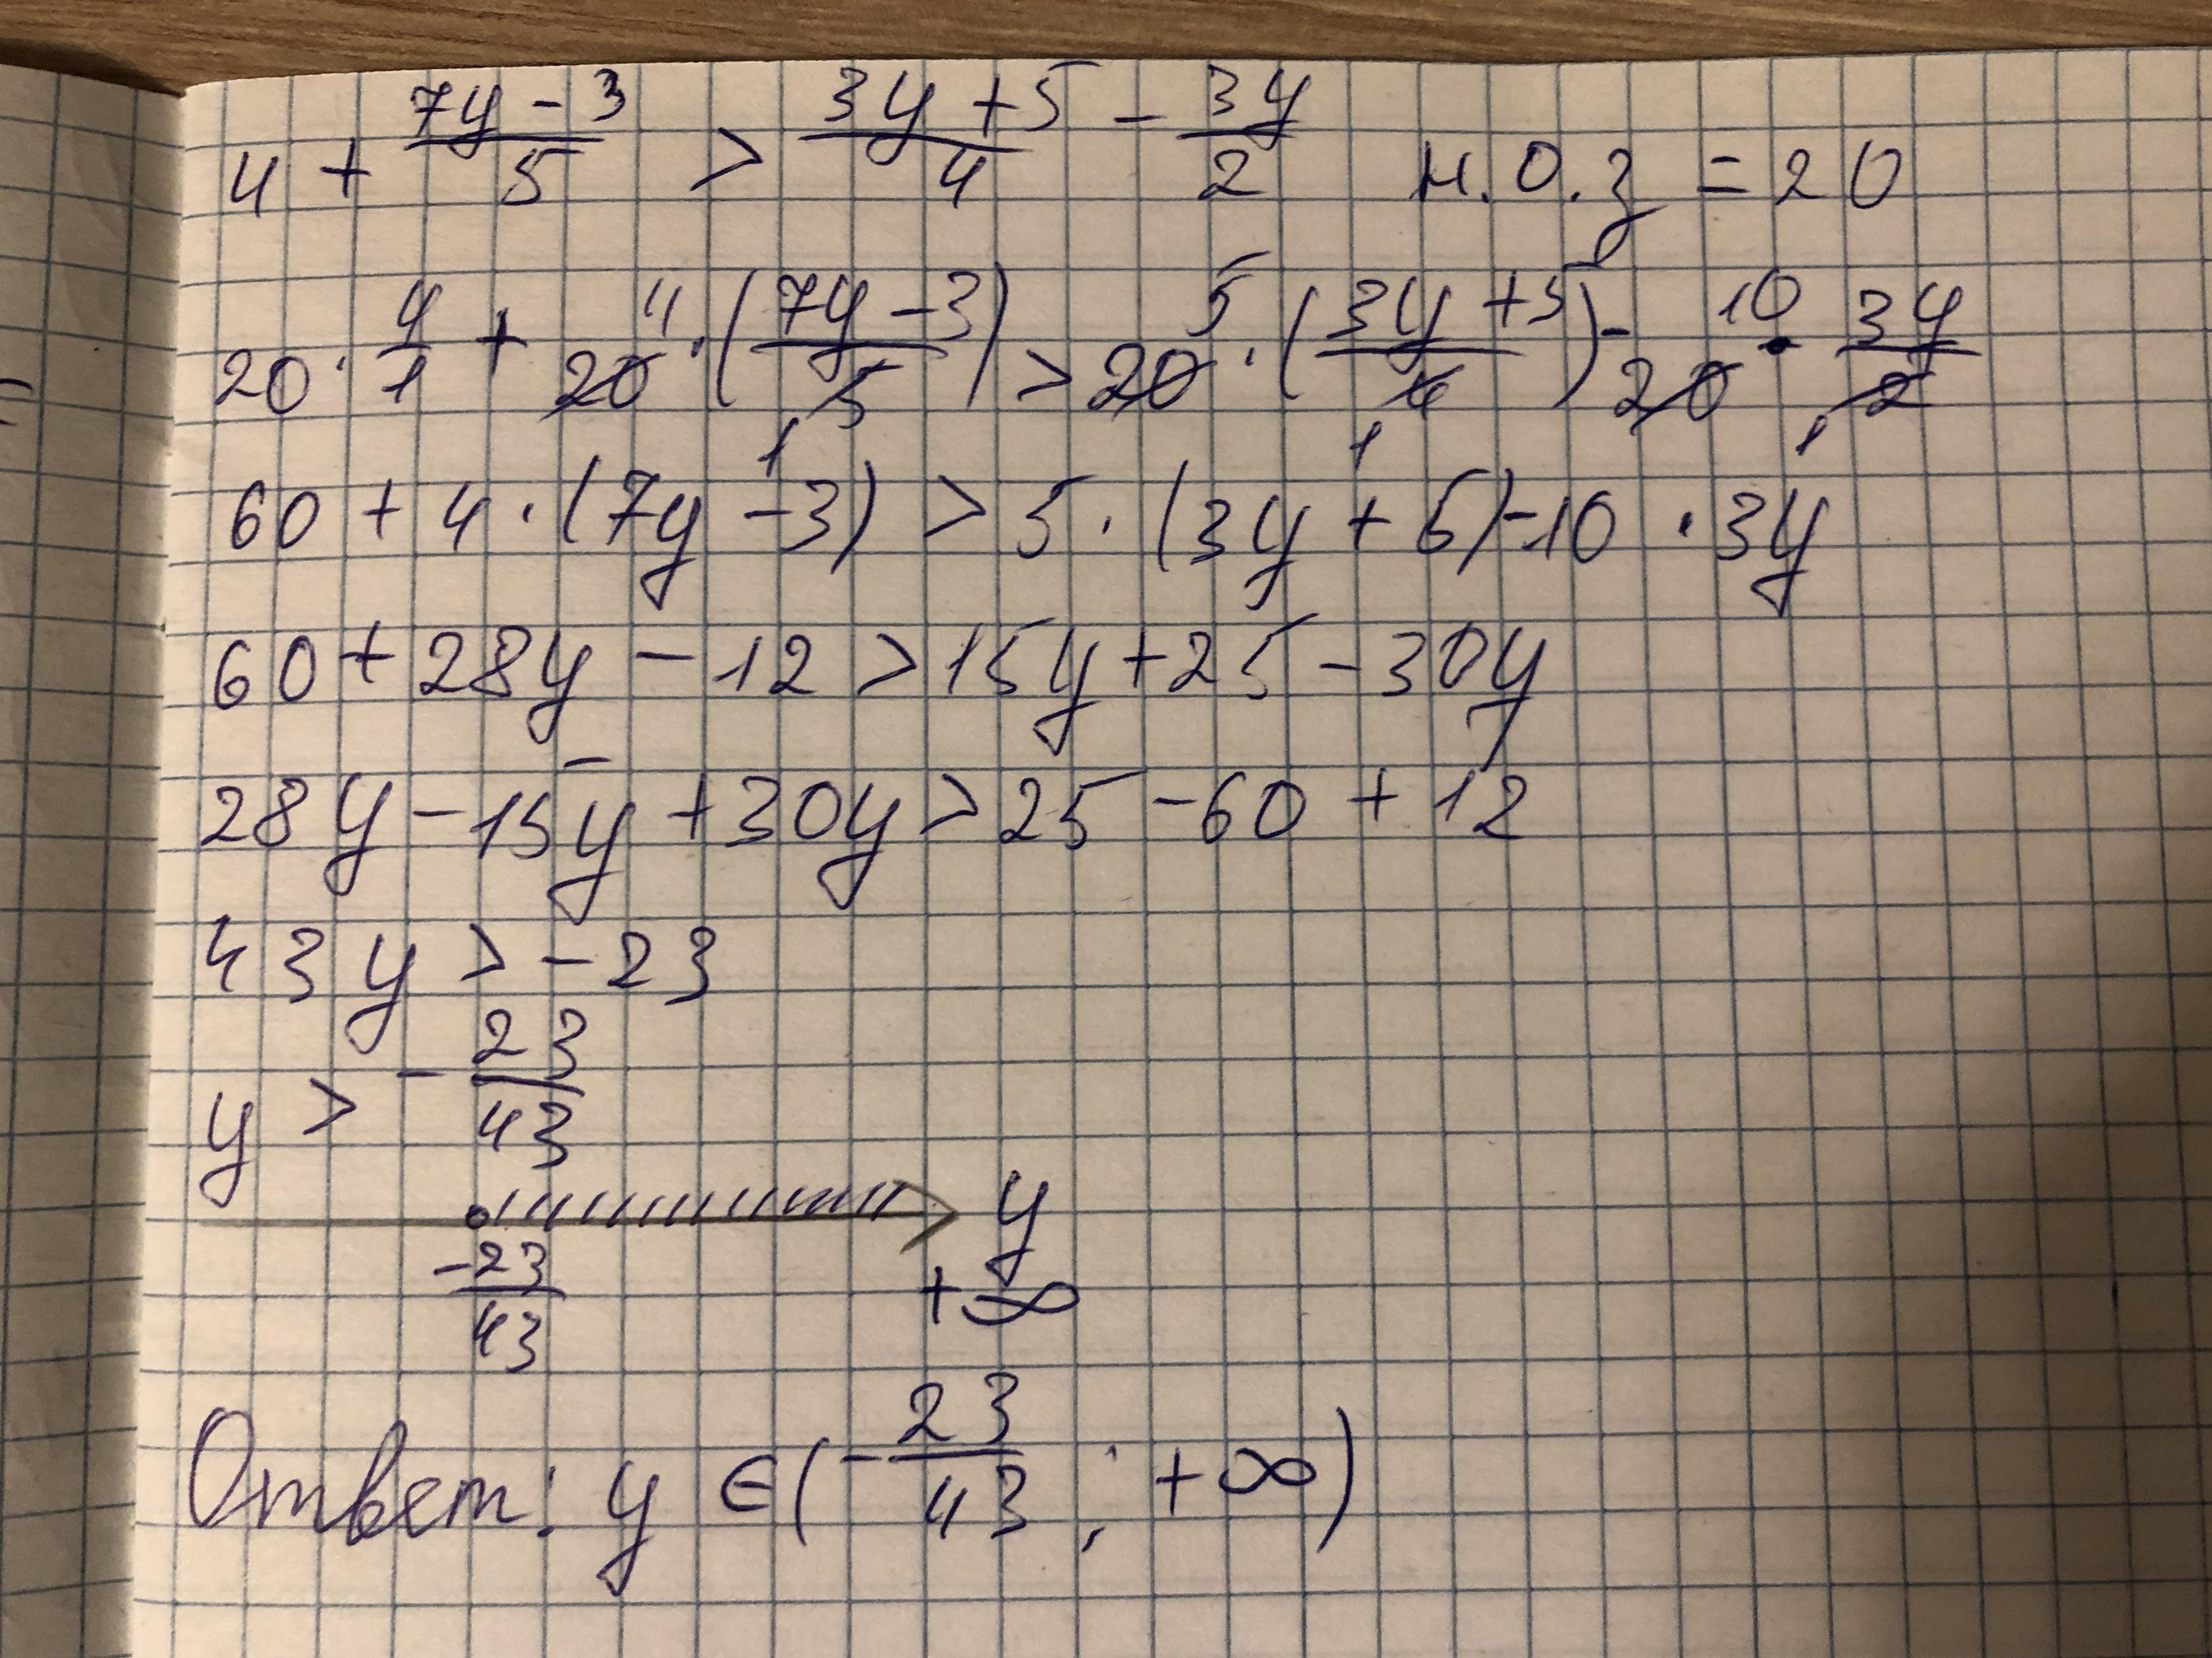 4 + (7y - 3)/5 > (3y + 5)/4 - 3y/2 н.о.з = 20
20 · 4/1 + 20 4 · ((7y - 3)/5 1) > 20 5 · ((3y + 5)/4 1) - 20 10 · 3y/2 1
60 + 4 · (7y - 3) > 5 · (3y + 5) - 10 · 3y
60 + 28y - 12 > 15y + 25 - 30y
28y - 15y + 30y > 25 - 60 + 12
43y > - 23
y > - 23/43
y
-23/43 +∞
Ответ: y ∈ (- 23/43 ; +∞)